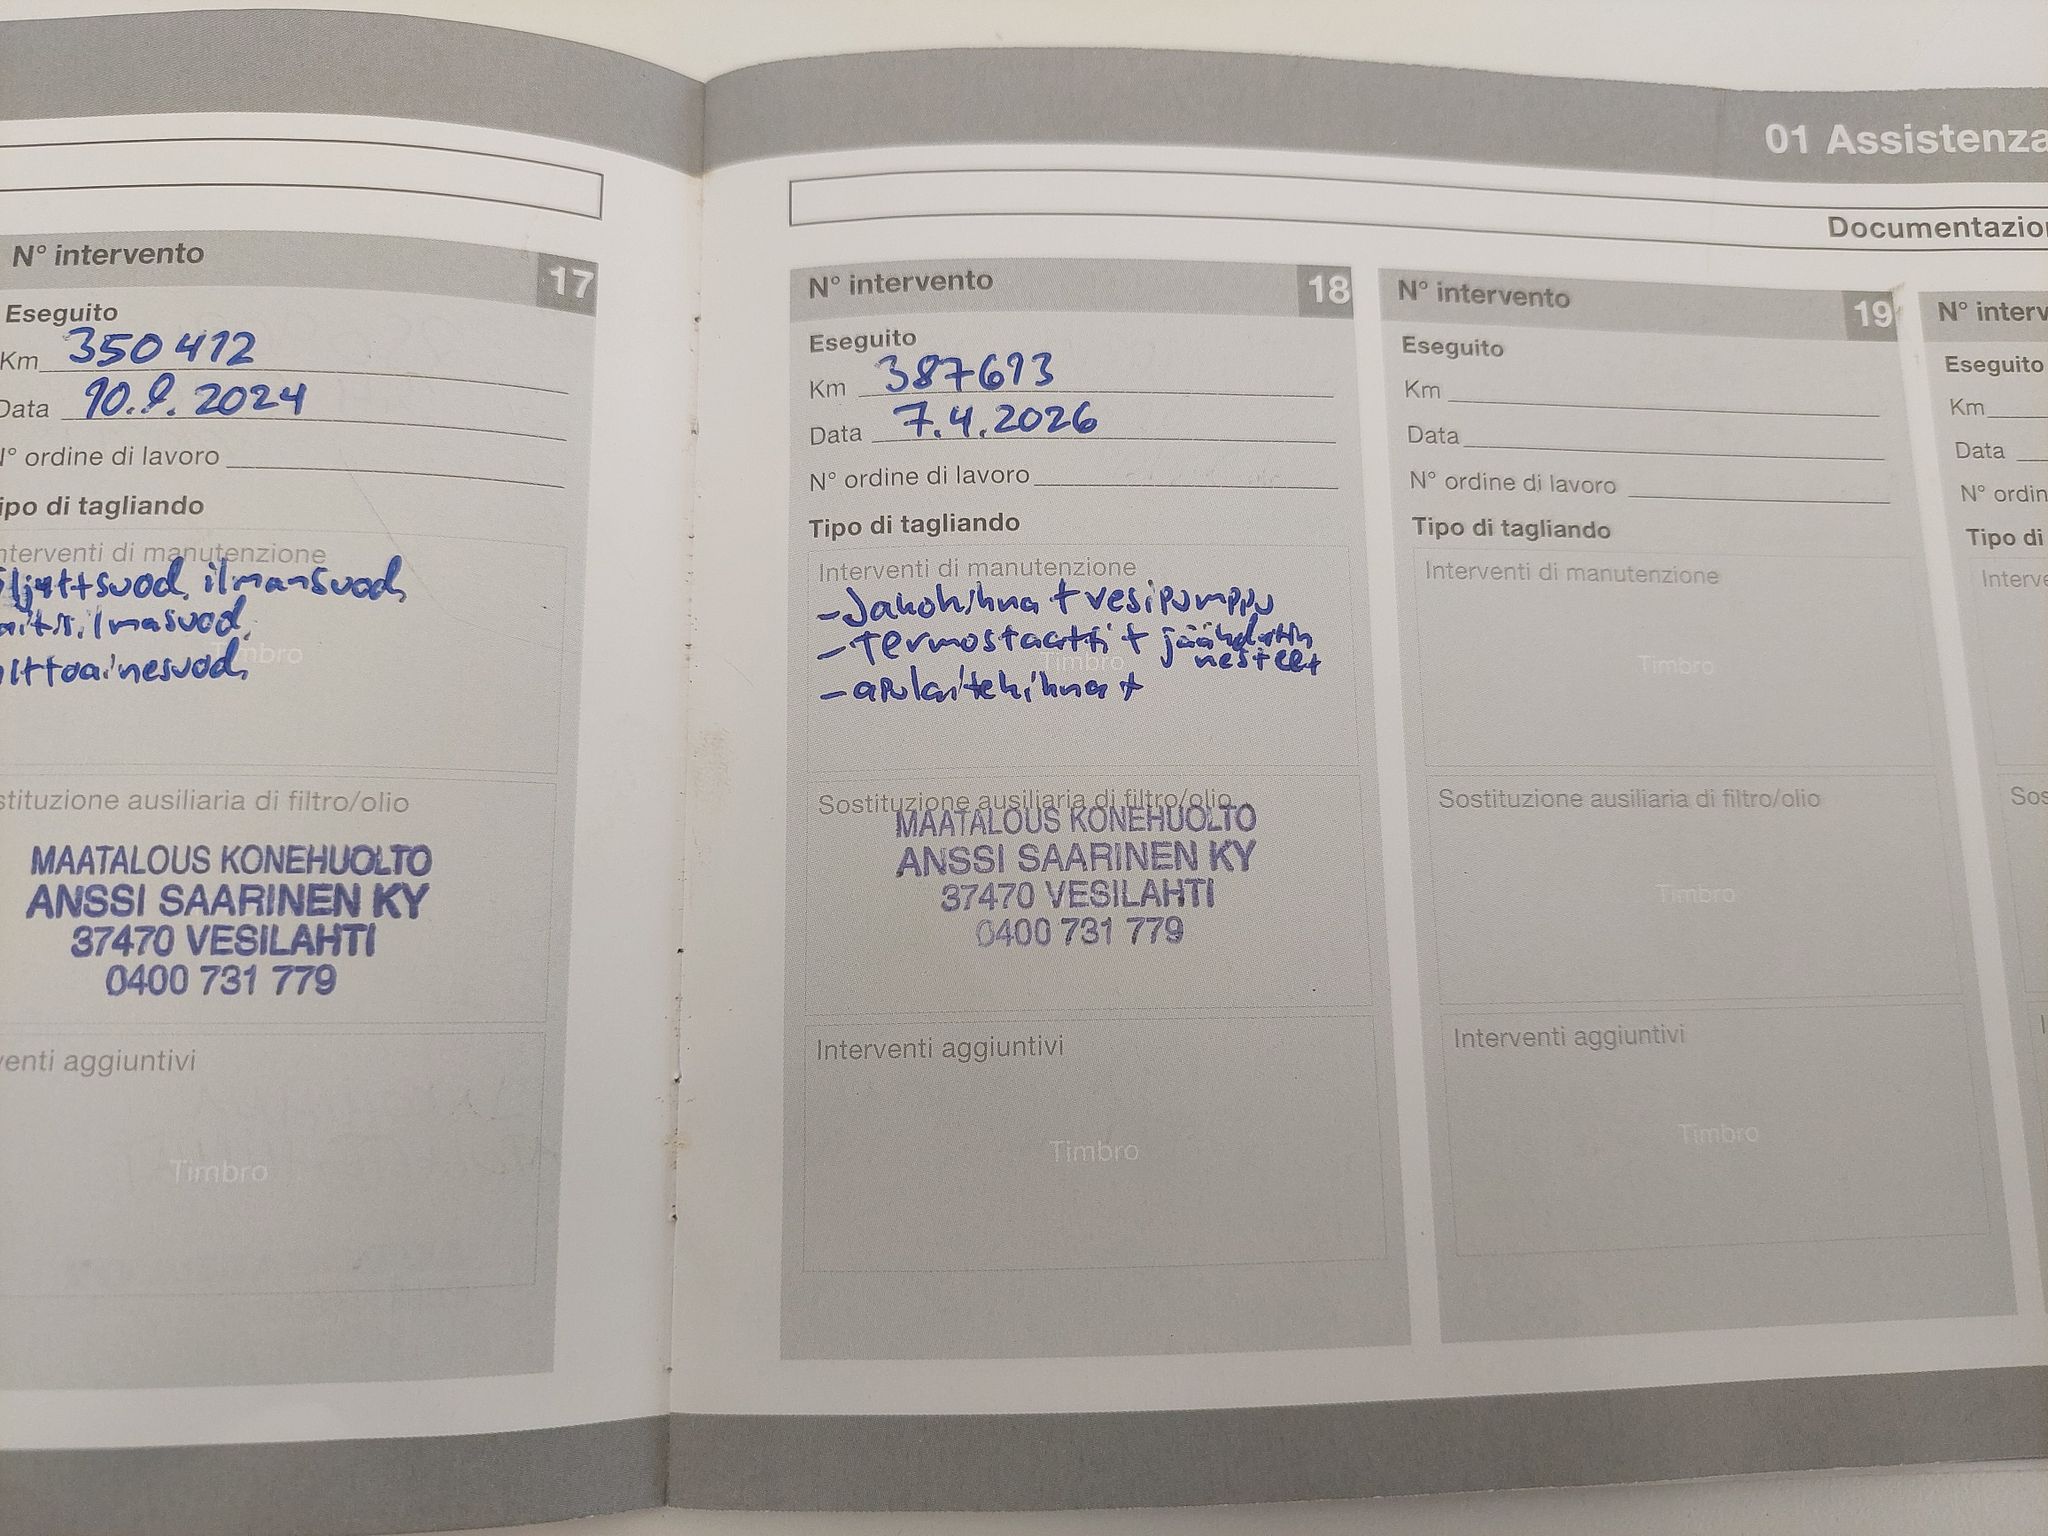 01 Assistenza
Documentazion
N° intervento 17
Eseguito
Km 350412
Data 10.9.2024
N° ordine di lavoro
Tipo di tagliando
Interventi di manutenzione
ilmansuod,
Timbro
Sostituzione ausiliaria di filtro/olio
MAATALOUS KONEHUOLTO
ANSSI SAARINEN KY
37470 VESILAHTI
0400 731 779
venti aggiuntivi
Timbro
N° intervento 18
Eseguito
Km 387613
Data 7.4.2026
N° ordine di lavoro
Tipo di tagliando
Interventi di manutenzione
- Jakohihna + vesipumppu
- Termostaatti + jäähdytin
nesteet
Timbro
- apulaitehihna +
Sostituzione ausiliaria di filtro/olio
MAATALOUS KONEHUOLTO
ANSSI SAARINEN KY
37470 VESILAHTI
0400 731 779
Interventi aggiuntivi
Timbro
N° intervento 19
Eseguito
Km
Data
N° ordine di lavoro
Tipo di tagliando
Interventi di manutenzione
Timbro
Sostituzione ausiliaria di filtro/olio
Timbro
Interventi aggiuntivi
Timbro
N° interv
Eseguito
Km
Data
N° ordin
Tipo di
Interve
Sos